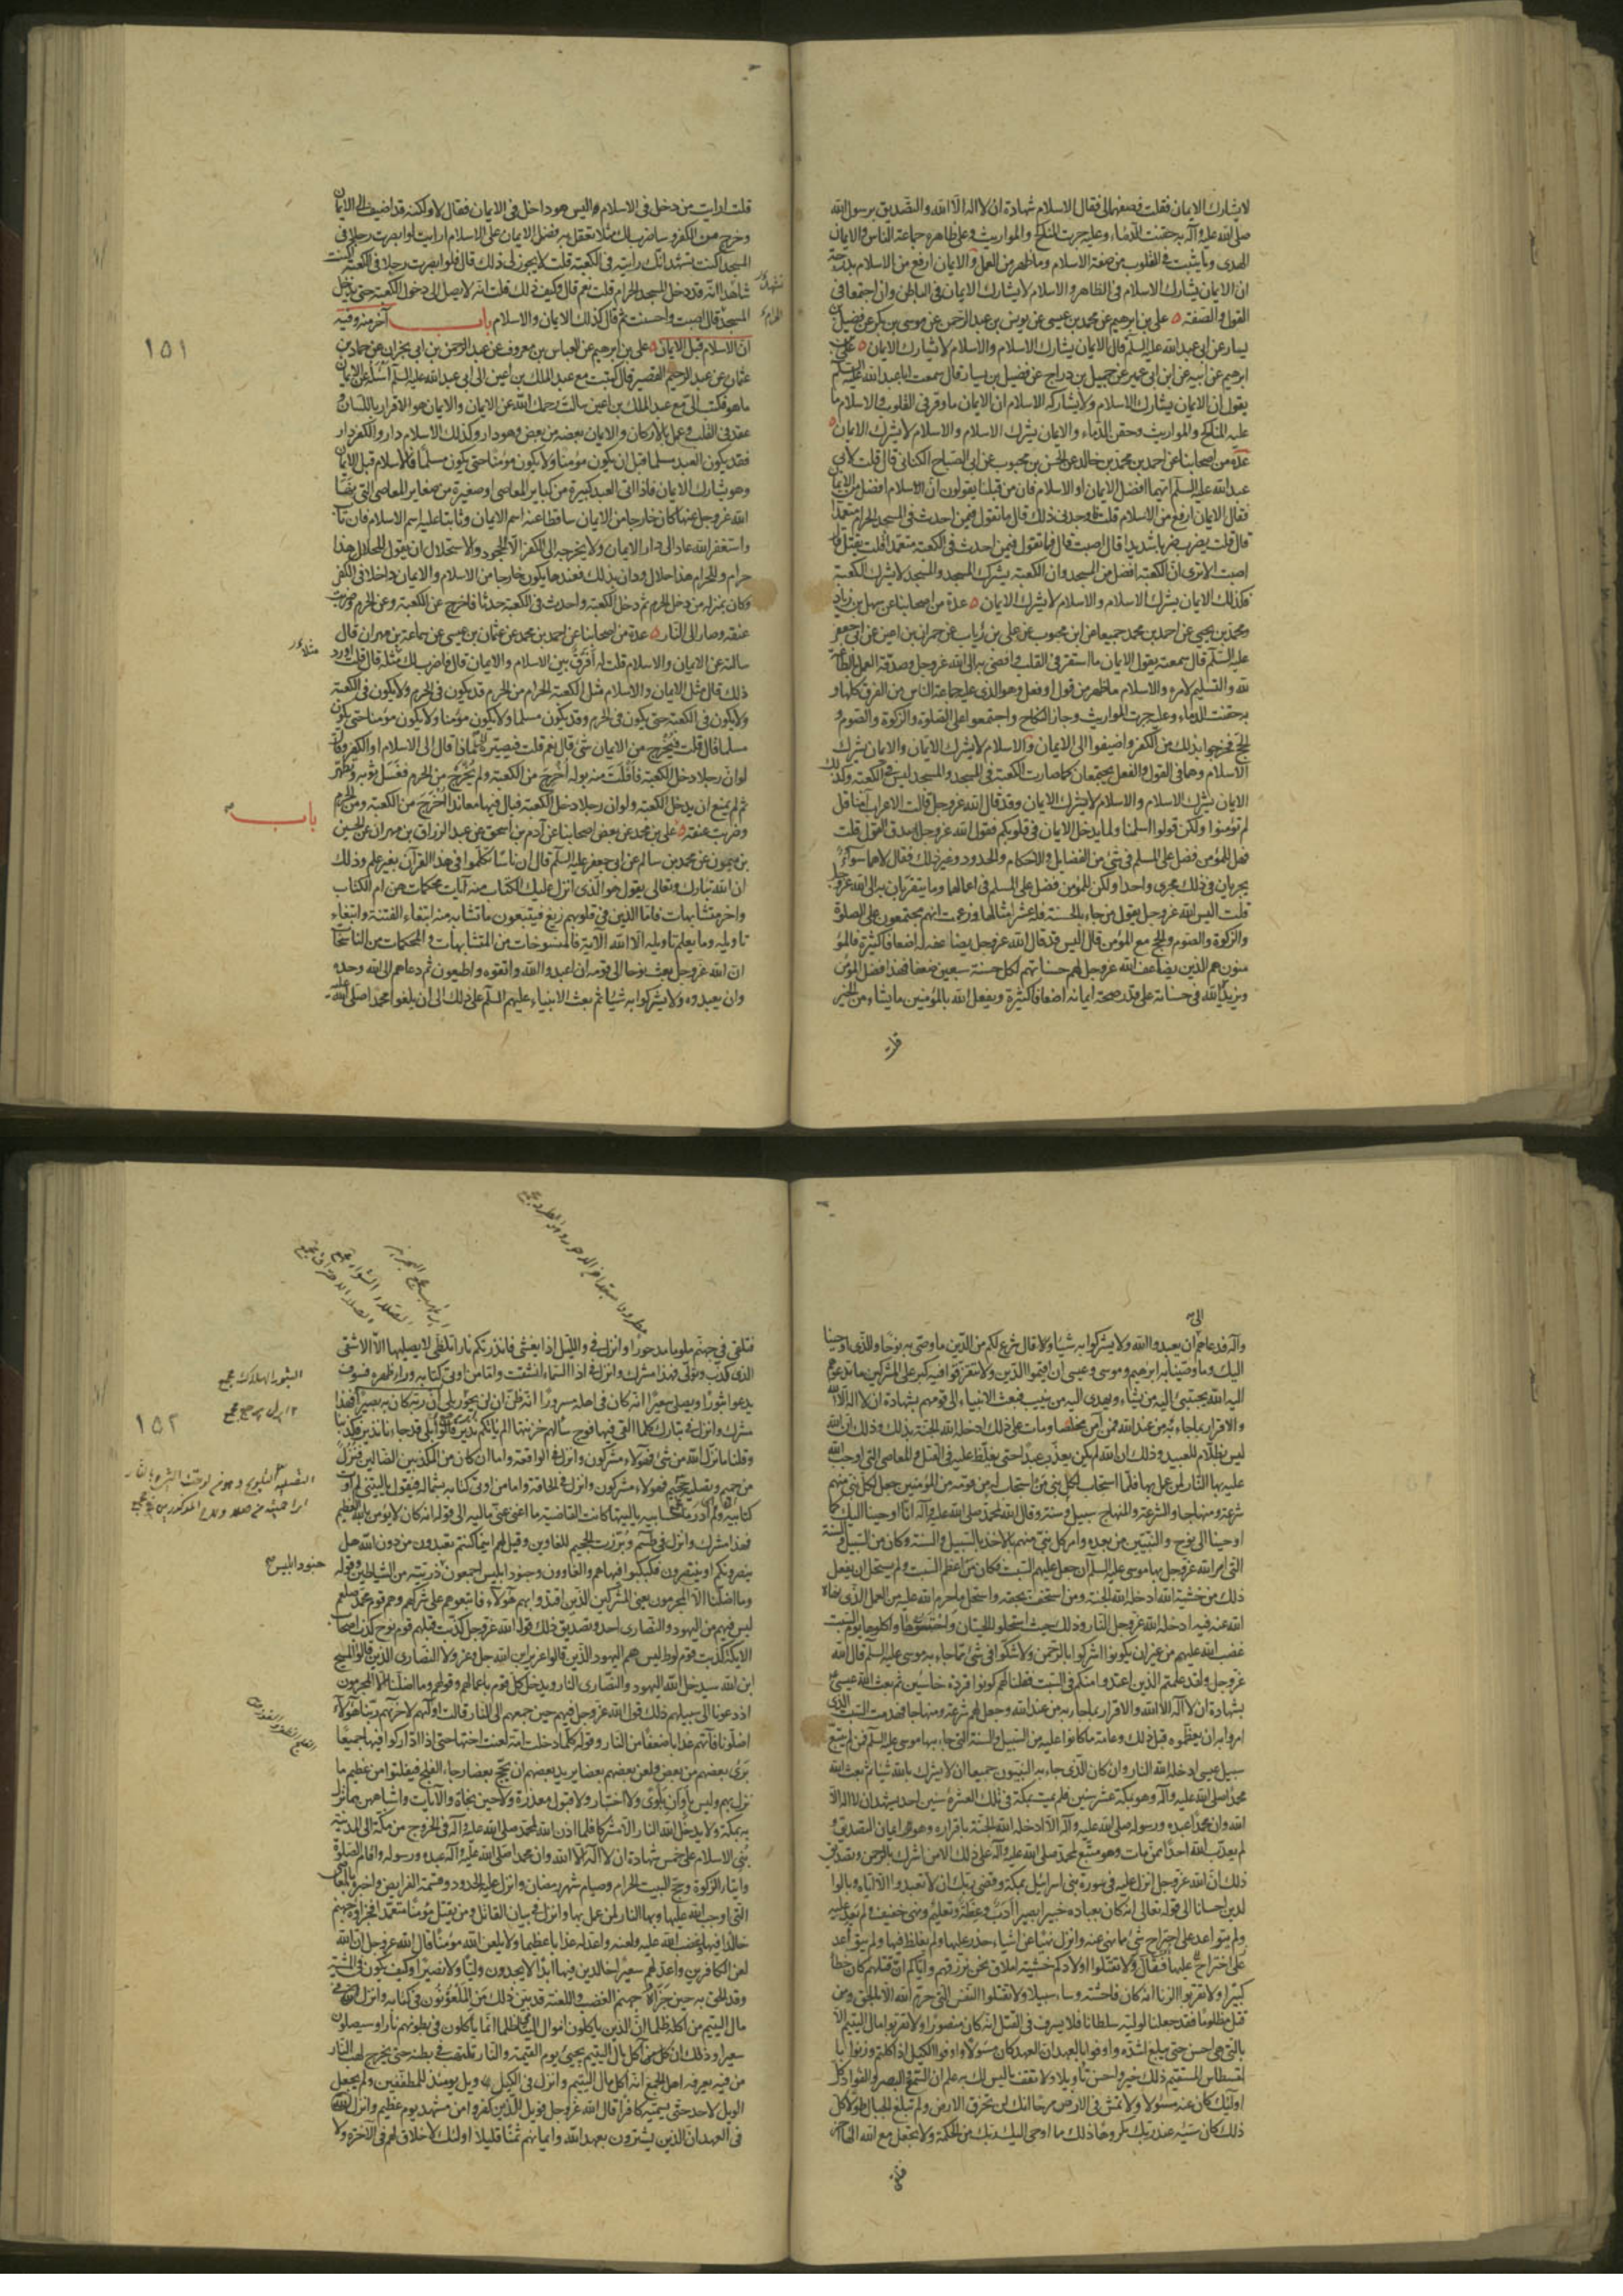 لايشارك الايمان فقلت فصفهما لى فقال الاسلام شهادة ان لااله الا الله والتصديق برسول الله
صلى الله عليه وآله به حقنت الدماء وعليه جرت المناكح والمواريث وعلى ظاهره جماعة الناس والايمان
الهدى وما يثبت فى القلوب من صفة الاسلام وما ظهر من العمل والايمان ارفع من الاسلام بدرجة
ان الايمان يشارك الاسلام فى الظاهر والاسلام لايشارك الايمان فى الباطن وان اجتمعا فى
القول والصفة ٥ على بن ابرهيم عن محمد بن عيسى عن يونس بن عبد الرحمن عن موسى بن بكر عن فضيل بن
يسار عن ابى عبد الله عليه السلم قال الايمان يشارك الاسلام والاسلام لايشارك الايمان ٥ على بن
ابرهيم عن ابيه عن ابن ابى عمير عن جميل بن دراج عن فضيل بن يسار قال سمعت ابا عبد الله عليه السلم
يقول ان الايمان يشارك الاسلام ولا يشاركه الاسلام ان الايمان ما وقر فى القلوب والاسلام ما
عليه المناكح والمواريث وحقن الدماء والايمان يشرك الاسلام والاسلام لايشرك الايمان ٥
عدة من اصحابنا عن احمد بن محمد بن خالد عن الحسن بن محبوب عن ابى الصباح الكنانى قال قلت لابى
عبد الله عليه السلم ايهما افضل الايمان او الاسلام فان من قبلنا يقولون ان الاسلام افضل من الايمان
فقال الايمان ارفع من الاسلام قلت فاوجدنى ذلك قال ما تقول فيمن احدث فى المسجد الحرام متعمدا
قال قلت يضرب ضربا شديدا قال اصبت قال فما تقول فيمن احدث فى الكعبة متعمدا قلت يقتل قال
اصبت الاترى ان الكعبة افضل من المسجد وان الكعبة يشرك المسجد والمسجد لايشرك الكعبة
فكذلك الايمان يشرك الاسلام والاسلام لايشرك الايمان ٥ عدة من اصحابنا عن سهل بن زياد
ومحمد بن يحيى عن احمد بن محمد جميعا عن ابن محبوب عن على بن رئاب عن حمران بن اعين عن ابى جعفر
عليه السلم قال سمعته يقول الايمان ما استقر فى القلب وافضى به الى الله عزوجل وصدقه العمل بالطاعة
لله والتسليم لامره والاسلام ما ظهر من قول او فعل وهو الذى عليه جماعة الناس من الفرق كلها و
به حقنت الدماء وعليه جرت المواريث وجاز النكاح واجتمعوا على الصلوة والزكوة والصوم و
الحج فخرجوا بذلك من الكفر واضيفوا الى الايمان والاسلام لايشرك الايمان والايمان يشرك
الاسلام وهما فى القول والفعل يجتمعان كما صارت الكعبة فى المسجد والمسجد ليس فى الكعبة وكذلك
الايمان يشرك الاسلام والاسلام لايشرك الايمان وقد قال الله عزوجل قالت الاعراب آمنا قل
لم تؤمنوا ولكن قولوا اسلمنا ولما يدخل الايمان فى قلوبكم فقول الله عزوجل اصدق القول قلت
فهل للمؤمن فضل على المسلم فى شئ من الفضايل والاحكام والحدود وغير ذلك فقال لا هما سواء
يجريان فى ذلك مجرى واحد ولكن للمؤمن فضل على المسلم فى اعمالهما وما يتقربان به الى الله عزوجل
قلت اليس الله عزوجل يقول من جاء بالحسنة فله عشر امثالها وزعمت انهم مجتمعون على الصلوة
والزكوة والصوم والحج مع المؤمن قال اليس قد قال الله عزوجل يضاعفه له اضعافا كثيرة فالمؤ
منون هم الذين يضاعف الله عزوجل لهم حسناتهم لكل حسنة سبعين ضعفا فهذا فضل المؤمن
ويزيد الله فى حسناته على قدر صحة ايمانه اضعافا كثيرة ويفعل الله بالمؤمنين ما يشاء من الخير
قلت
قلت ارايت من دخل فى الاسلام اليس هو داخل فى الايمان فقال لا ولكنه قد اضيف الى الايمان
وخرج من الكفر وساضرب لك مثلا تعقل به فضل الايمان على الاسلام ارايت لو ابصرت رجلا فى
المسجد اكنت تشهد انك رايته فى الكعبة قلت لا يجوز لى ذلك قال فلو ابصرت رجلا فى الكعبة اكنت
شاهدا انه قد دخل المسجد الحرام قلت نعم قال وكيف ذلك قلت انه لا يصل الى دخول الكعبة حتى يدخل
المسجد قال اصبت واحسنت ثم قال كذلك الايمان والاسلام باب آخر منه وفيه
ان الاسلام قبل الايمان ٥ على بن ابرهيم عن العباس بن معروف عن عبد الرحمن بن ابى نجران عن حماد بن
١٥١
عثمان عن عبد الرحيم القصير قال كتبت مع عبد الملك بن اعين الى ابى عبد الله عليه السلم اسأله عن الايمان
ما هو فكتب الى مع عبد الملك بن اعين سالت رحمك الله عن الايمان والايمان هو الاقرار باللسان و
عقد فى القلب وعمل بالاركان والايمان بعضه من بعض وهو دار وكذلك الاسلام دار والكفر دار
فقد يكون العبد مسلما قبل ان يكون مؤمنا ولا يكون مؤمنا حتى يكون مسلما فالاسلام قبل الايمان
وهو يشارك الايمان فاذا اتى العبد كبيرة من كباير المعاصى او صغيرة من صغاير المعاصى التى نهى
الله عزوجل عنها كان خارجا من الايمان ساقطا عنه اسم الايمان وثابتا عليه اسم الاسلام فان تاب
واستغفر الله عاد الى دار الايمان ولا يخرجه الى الكفر الا الجحود والاستحلال ان يقول للحلال هذا
حرام وللحرام هذا حلال ودان بذلك فعندها يكون خارجا من الاسلام والايمان داخلا فى الكفر
وكان بمنزله من دخل الحرم ثم دخل الكعبة واحدث فى الكعبة حدثا فاخرج عن الكعبة وعن الحرم وضربت
عنقه وصار الى النار ٥ عدة من اصحابنا عن احمد بن محمد عن عثمان بن عيسى عن سماعة بن مهران قال
سالته عن الايمان والاسلام قلت له افرق بين الاسلام والايمان قال فاضرب لك مثله قال قلت اورد
ذلك قال مثل الايمان والاسلام مثل الكعبة الحرام من الحرم قد يكون فى الحرم ولا يكون فى الكعبة
ولا يكون فى الكعبة حتى يكون فى الحرم وقد يكون مسلما ولا يكون مؤمنا ولا يكون مؤمنا حتى يكون
مسلما قال قلت فيخرج من الايمان شئ قال نعم قلت فيصيره الى ماذا قال الى الاسلام او الكفر وقال
لو ان رجلا دخل الكعبة فافلت منه بوله اخرج من الكعبة ولم يخرج من الحرم فغسل ثوبه وتطهر
ثم لم يمنع ان يدخل الكعبة ولو ان رجلا دخل الكعبة فبال فيها معاندا اخرج من الكعبة ومن الحرم
باب
وضربت عنقه ٥ على بن محمد عن بعض اصحابنا عن آدم بن اسحق عن عبد الرزاق بن مهران عن الحسين
بن ميمون عن محمد بن سالم عن ابى جعفر عليه السلم قال ان اناسا تكلموا فى هذا القرآن بغير علم وذلك
ان الله تبارك وتعالى يقول هو الذى انزل عليك الكتاب منه آيات محكمات هن ام الكتاب
واخر متشابهات فاما الذين فى قلوبهم زيغ فيتبعون ما تشابه منه ابتغاء الفتنة وابتغاء
تاويله وما يعلم تاويله الا الله الآية فالمنسوخات من المتشابهات والمحكمات من الناسخات
ان الله عزوجل بعث نوحا الى قومه ان اعبدوا الله واتقوه واطيعون ثم دعاهم الى الله وحده
وان يعبدوه ولا يشركوا به شيئا ثم بعث الانبياء عليهم السلم على ذلك الى ان بلغوا محمدا صلى الله عليه
وآله فدعاهم ان يعبدوا الله ولا يشركوا به شيئا وقال شرع لكم من الدين ما وصى به نوحا والذى اوحينا
اليك وما وصينا به ابرهيم وموسى وعيسى ان اقيموا الدين ولا تتفرقوا فيه كبر على المشركين ما تدعوهم
اليه الله يجتبى اليه من يشاء ويهدى اليه من ينيب فبعث الانبياء الى قومهم بشهادة ان لا اله الا الله
والاقرار بما جاء به من عند الله فمن آمن مخلصا ومات على ذلك ادخله الله الجنة بذلك وذلك ان الله
ليس بظلام للعبيد وذلك ان الله لم يكن يعذب عبدا حتى يغلظ عليه فى القتل والمعاصى التى اوجب الله
عليه بها النار لمن عمل بها فلما استجاب لكل نبى من استجاب له من قومه من المؤمنين جعل لكل نبى منهم
شرعة ومنهاجا والشرعة والمنهاج سبيل وسنة وقال الله لمحمد صلى الله عليه وآله انا اوحينا اليك كما
اوحينا الى نوح والنبيين من بعده وامر كل نبى منهم بالاخذ بالسبيل والسنة وكان من السبيل والسنة
التى امر الله عزوجل بها موسى عليه السلم ان جعل عليهم السبت فكان من اعظم السبت ولم يستحل ان يفعل
ذلك من خشية الله ادخله الله الجنة ومن استخف بحقه واستحل ما حرم الله عليه من العمل الذى نهاه
الله عنه فيه ادخله الله عزوجل النار وذلك حيث استحلوا الحيتان واحتبسوها واكلوها يوم السبت
غضب الله عليهم من غير ان يكونوا اشركوا بالرحمن ولا شكوا فى شئ مما جاء به موسى عليه السلم قال الله
عزوجل ولقد علمتم الذين اعتدوا منكم فى السبت فقلنا لهم كونوا قردة خاسئين ثم بعث الله عيسى
بشهادة ان لا اله الا الله والاقرار بما جاء به من عند الله وجعل لهم شرعة ومنهاجا فهدمت السبت الذى
امروا به ان يعظموه قبل ذلك وعامة ما كانوا عليه من السبيل والسنة التى جاء بها موسى عليه السلم فمن لم يتبع
سبيل عيسى ادخله الله النار وان كان الذى جاء به النبيون جميعا ان لا يشرك بالله شيئا ثم بعث الله
محمدا صلى الله عليه وآله وهو بمكة عشر سنين فلم يمت بمكة فى تلك العشر سنين احد يشهد ان لا اله الا
الله وان محمدا عبده ورسوله صلى الله عليه وآله الا ادخله الله الجنة باقراره وهو ايمان التصديق و
لم يعذب الله احدا ممن مات وهو متبع لمحمد صلى الله عليه وآله على ذلك الا من اشرك بالرحمن وتصديق
ذلك ان الله عزوجل انزل عليه فى سورة بنى اسرائيل بمكة وقضى ربك ان لا تعبدوا الا اياه وبالوا
لدين احسانا الى قوله تعالى انه كان بعباده خبيرا بصيرا ادب وعظة وتعليم ونهى خفيف ولم يعد عليه
ولم يتواعد على اجتراح شئ مما نهى عنه وانزل نهيا عن اشياء حذر عليها ولم يغلظ فيها ولم يتواعد
عليها وقال ولا تقتلوا اولادكم خشية املاق نحن نرزقهم واياكم ان قتلهم كان خطأ
كبيرا ولا تقربوا الزنا انه كان فاحشة وساء سبيلا ولا تقتلوا النفس التى حرم الله الا بالحق ومن
قتل مظلوما فقد جعلنا لوليه سلطانا فلا يسرف فى القتل انه كان منصورا ولا تقربوا مال اليتيم الا
بالتى هى احسن حتى يبلغ اشده واوفوا بالعهد ان العهد كان مسئولا واوفوا الكيل اذا كلتم وزنوا با
لقسطاس المستقيم ذلك خير واحسن تأويلا ولا تقف ما ليس لك به علم ان السمع والبصر والفؤاد كل
اولئك كان عنه مسئولا ولا تمش فى الارض مرحا انك لن تخرق الارض ولن تبلغ الجبال طولا كل
ذلك كان سيئه عند ربك مكروها ذلك مما اوحى اليك ربك من الحكمة ولا تجعل مع الله الها آخر
فتلقى
فتلقى فى جهنم ملوما مدحورا وانزل فى والليل اذا يغشى فانذرتكم نارا تلظى لا يصليها الا الاشقى
الذى كذب وتولى فهذا مشرك وانزل فى اذا السماء انشقت واما من اوتى كتابه وراء ظهره فسوف
يدعوا ثبورا ويصلى سعيرا انه كان فى اهله مسرورا انه ظن ان لن يحور بلى ان ربه كان به بصيرا فهذا
١٥٢
مشرك وانزل فى تبارك كلما القى فيها فوج سألهم خزنتها الم ياتكم نذير قالوا بلى قد جاءنا نذير فكذبنا
وقلنا ما نزل الله من شئ فهؤلاء مشركون وانزل فى الواقعة واما ان كان من المكذبين الضالين فنزل
من حميم وتصلية جحيم فهؤلاء مشركون وانزل فى الحاقة واما من اوتى كتابه بشماله فيقول يا ليتنى لم اوت
كتابيه ولم ادر ما حسابيه يا ليتها كانت القاضية ما اغنى عنى ماليه الى قوله انه كان لا يؤمن بالله العظيم
فهذا مشرك وانزل فى طسم وبرزت الجحيم للغاوين وقيل لهم اينما كنتم تعبدون من دون الله هل
ينصرونكم او ينتصرون فكبكبوا فيها هم والغاوون وجنود ابليس اجمعون ذريته من الشياطين وقوله
جنود ابليس
وما اضلنا الا المجرمون يعنى المشركين الذين اقتدوا بهم هؤلاء فاتبعوهم على شركهم وهم قوم محمد صلعم
ليس فيهم من اليهود والنصارى احد وتصديق ذلك قول الله عزوجل كذبت قبلهم قوم نوح كذب اصحاب
الايكة كذبت قوم لوط ليس هم اليهود الذين قالوا عزير ابن الله جل وعز ولا النصارى الذين قالوا المسيح
ابن الله سيدخل الله اليهود والنصارى النار ويدخل كل قوم باعمالهم وقولهم وما اضلنا الا المجرمون
اذ دعونا الى سبيلهم ذلك قول الله عزوجل فيهم حين جمعهم الى النار قالت اوليهم لاخريهم ربنا هؤلاء
اضلونا فآتهم عذابا ضعفا من النار وقوله كلما دخلت امة لعنت اختها حتى اذا اداركوا فيها جميعا
برئ بعضهم من بعض ولعن بعضهم بعضا يريد بعضهم ان يحج بعضا رجاء الفلج فيفلتوا من عظيم ما
نزل بهم وليس باوان بلوى ولا اختبار ولا قبول معذرة ولا حين نجاة والآيات واشباههن مما نزل
به بمكة ولا يدخل الله النار الا مشركا فلما اذن الله لمحمد صلى الله عليه وآله فى الخروج من مكة الى المدينة
بنى الاسلام على خمس شهادة ان لا اله الا الله وان محمدا صلى الله عليه وآله عبده ورسوله واقام الصلوة
وايتاء الزكوة وحج البيت الحرام وصيام شهر رمضان وانزل عليه الحدود وقسمة الفرايض واخبره بالمعاصى
التى اوجب الله عليها وبها النار لمن عمل بها وانزل فى بيان القاتل ومن يقتل مؤمنا متعمدا فجزاؤه جهنم
خالدا فيها وغضب الله عليه ولعنه واعد له عذابا عظيما ولا يلعن الله مؤمنا قال الله عزوجل ان الله
لعن الكافرين واعد لهم سعيرا خالدين فيها ابدا لا يجدون وليا ولا نصيرا وكيف يكون فى المشية
وقد الحق به حين جزاه جهنم الغضب واللعنة قد بين ذلك من الملعونون فى كتابه وانزل فى
مال اليتيم من اكله ظلما ان الذين ياكلون اموال اليتامى ظلما انما ياكلون فى بطونهم نارا وسيصلون
سعيرا وذلك ان آكل مال اليتيم يجئ يوم القيمة والنار تلتهب فى بطنه حتى يخرج لهب النار
من فيه يعرفه اهل الجمع انه آكل مال اليتيم وانزل فى الكيل ويل يومئذ للمطففين ولم يجعل
الويل لاحد حتى يسميه كافرا قال الله عزوجل فويل للذين كفروا من مشهد يوم عظيم وانزل
فى العهد ان الذين يشترون بعهد الله وايمانهم ثمنا قليلا اولئك لاخلاق لهم فى الآخرة ولا